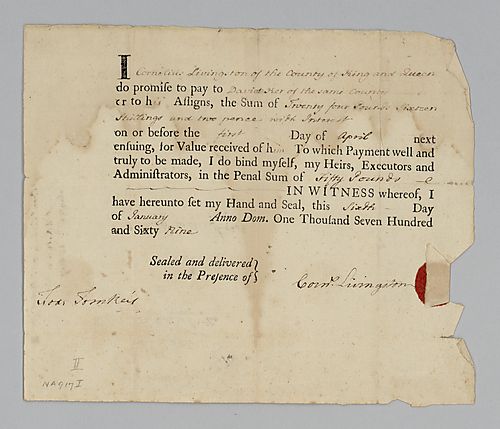 I Cornelius Livingston of the County of King and Queen
do promise to pay to David Ker of the same County
or to his Assigns, the Sum of Twenty four Pounds Sixteen
Shillings and two pence with Interest
on or before the first Day of April next
ensuing, for Value received of him To which Payment well and
truly to be made, I do bind myself, my Heirs, Executors and
Administrators, in the Penal Sum of Fifty Pounds
IN WITNESS whereof, I
have hereunto set my Hand and Seal, this Sixth Day
of January Anno Dom. One Thousand Seven Hundred
and Sixty Nine
Sealed and delivered
in the Presence of
Corns. Livingston
Tomkies
II
NA917I